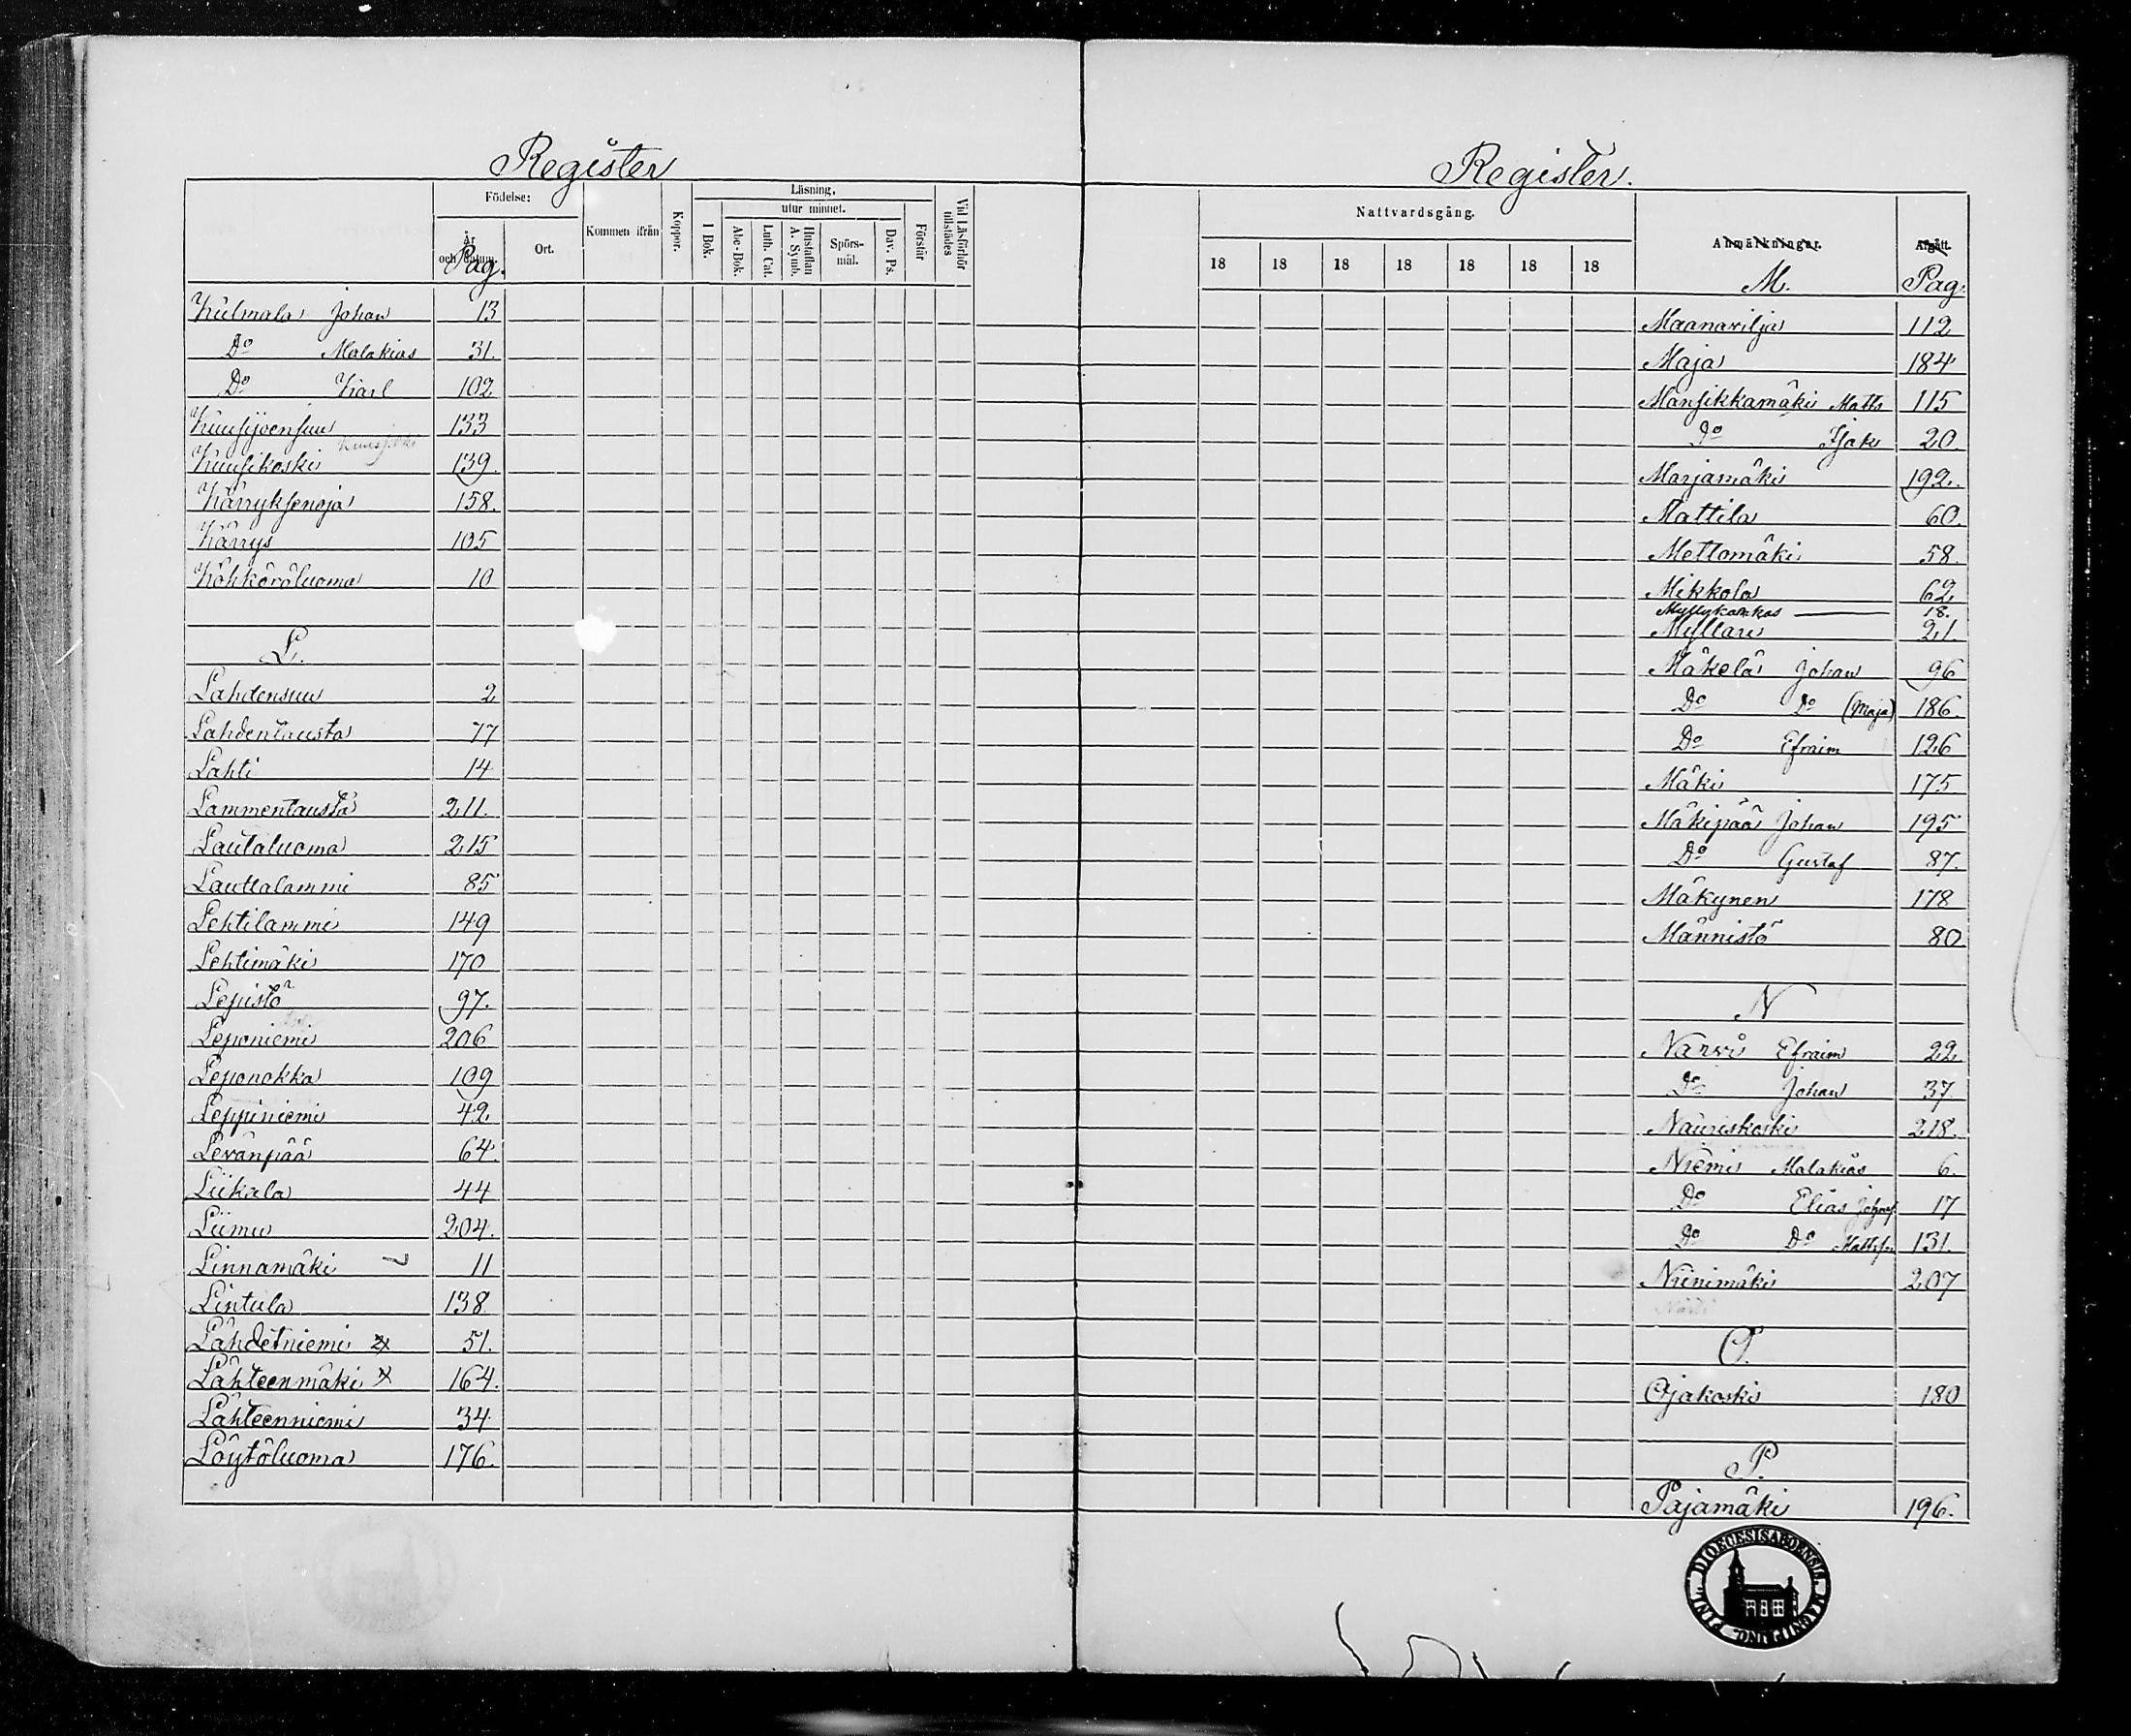 Register
Födelse:
År och datum.
Pag.
Ort.
Kommen ifrån
Koppor.
Läsning,
I Bok.
utur minnet.
Abc-Bok.
Luth. Cat.
Hustaflan A. Symb.
Spörsmål.
Dav. Ps.
Förstår
Vid Läsförhör tillstädes
Kulmala Johan 13
Do Malakias 31.
Do Karl 102
Kuusijoensuu 133
Kuusikoski 139.
Kärryksenoja 158.
Kärrys 105
Köhköröluoma 10
L.
Lahdensuu 2
Lahdentausta 77
Lahti 14
Lammentausta 211.
Lautaluoma 215
Lauttalammi 85
Lehtilammi 149
Lehtimäki 170
Lepistö 97.
Leponiemi 206
Leponokka 109
Leppiniemi 42.
Levänpää 64.
Liikala 44
Liimu 204.
Linnamäki 11
Lintula 138
Lähdetniemi x 51.
Lähteenmäki x 164.
Lähteenniemi 34
Löytöluoma 176.
Register.
Nattvardsgång.
18 18 18 18 18 18 18
Anmärkningar.
M.
Afgått.
Pag.
Maanavilja 112
Maja 184
Mansikkamäki Matts 115
Do Isak 20.
Marjamäki 192.
Mattila 60.
Mettomäki 58.
Mikkola 62
Myllykankas 18.
Myllari 21.
Mäkelä Johan 96
Do Do (Maja) 186.
Do Efraim 126
Mäki 175
Mäkipää Johan 195
Do Gustaf 87.
Mäkynen 178
Männistö 80
N
Narvi Efraim 22
Do Johan 37
Nauriskoski 218.
Niemi Malakias 6.
Do Elias Johans. 17
Do Do Mattss. 131.
Niinimäki 207
O.
Ojakoski 180
P.
Pajamäki 196.
DIOECESIS ABOENSIS. MAGNI DUC. FINL.